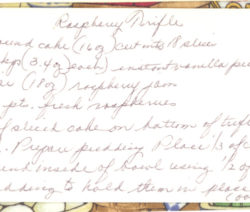 Raspberry Trifle
ound cake (16 oz) cut into 18 slice
kgs (3.4 oz each) instant vanilla pu
ar (18 oz) raspberry jam
pts. fresh raspberries
f sliced cake on bottom of trifl
. Prepare pudding Place 1/3 of
und inside of bowl using 1/2 o
dding to hold them in place
(o